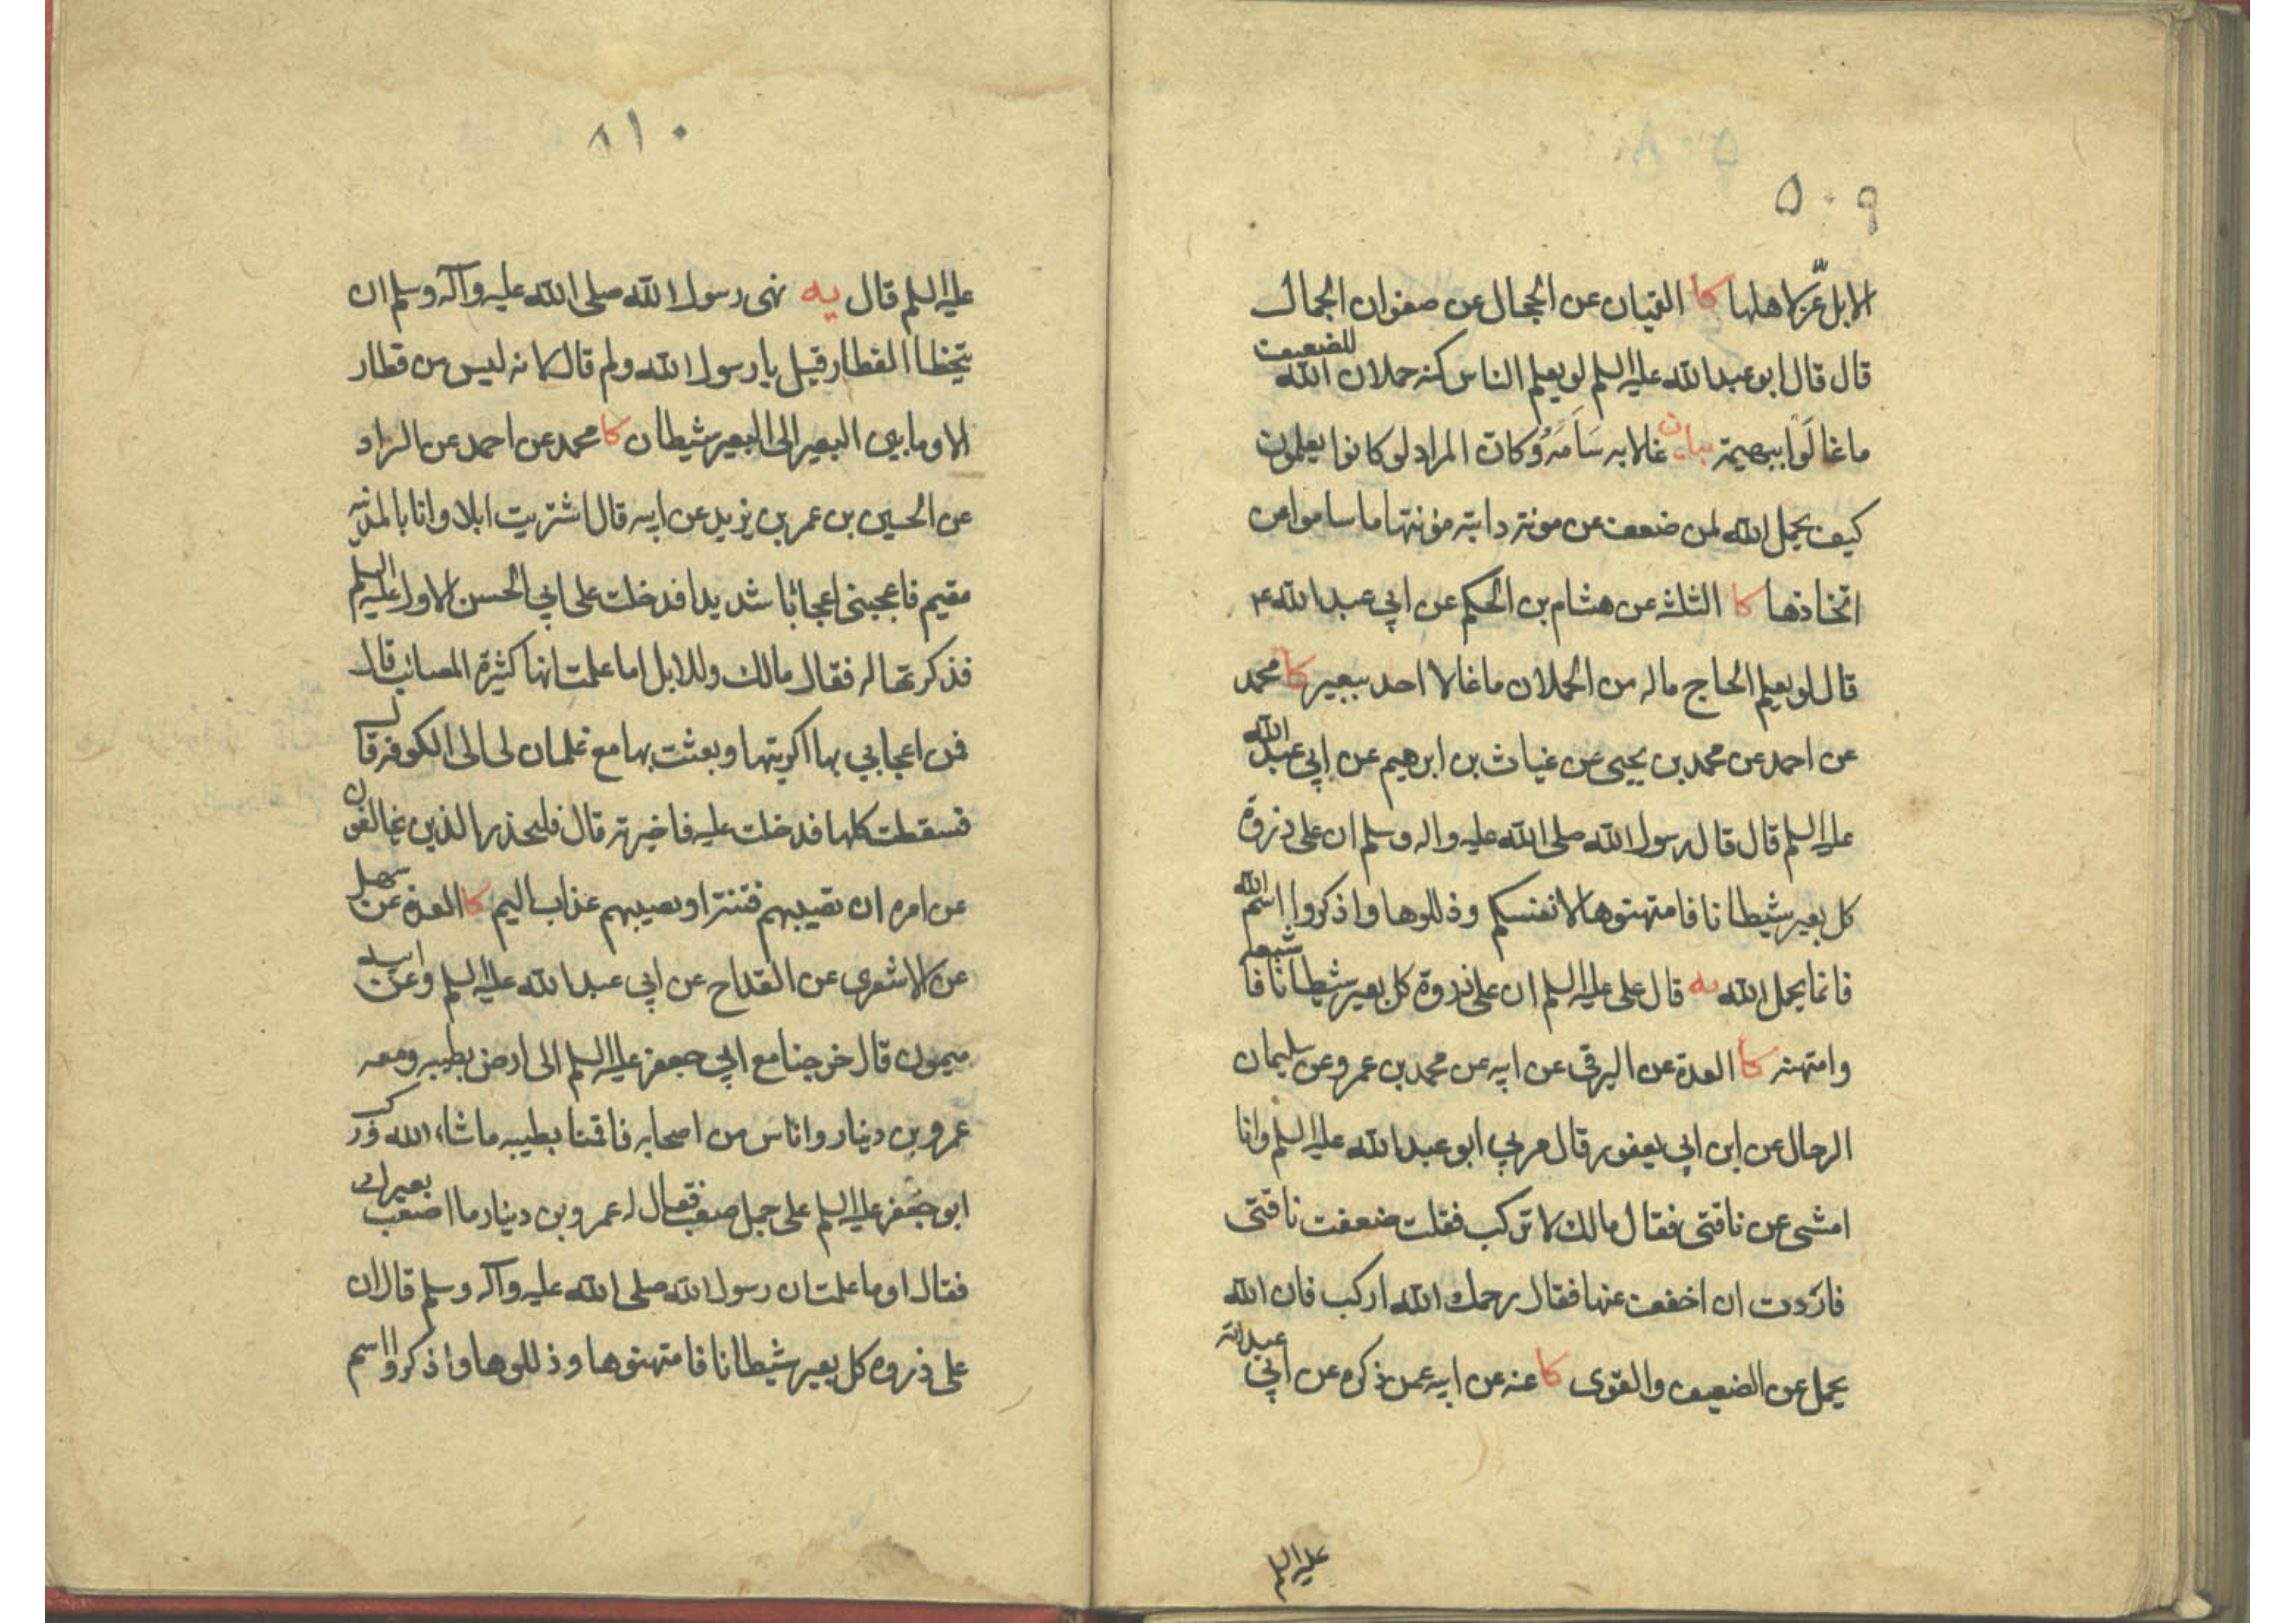 ٥٠٩
الابل عزّ لاهلها كا القتيبان عن الحجال عن صفوان الجمال
قال قال ابو عبد الله عليه السلم لو يعلم الناس كنه حملان الله للضعيف
ما غالَوا ببهيمة بيان غالا به سَامَهُ وكان المراد لو كانوا يعلمون
كيف يحمل الله لمن ضعف عن مونة دابته مؤنتها ما ساموا عن
اتخاذها كا الثلثة عن هشام بن الحكم عن ابي عبد الله ع
قال لو يعلم الحاج ماله من الحملان ما غالا احد ببعير كا محمد
عن احمد عن محمد بن يحيى عن غياث بن ابرهيم عن ابي عبد الله
عليه السلم قال قال رسول الله صلى الله عليه واله وسلم ان على ذروة
كل بعير شيطانا فامتهنوها لانفسكم وذللوها واذكروا اسم الله
فانما يحمل الله يه قال على عليه السلم ان على ذروة كل بعير شيطانا فاشبعه
وامتهنه كا العدة عن البرقي عن ابيه عن محمد بن عمرو عن سليمان
الرحال عن ابن ابي يعفور قال مر بي ابو عبد الله عليه السلم وانا
امشى عن ناقتى فقال مالك لا تركب فقلت ضعفت ناقتى
فاردت ان اخفف عنها فقال رحمك الله اركب فان الله
يحمل عن الضعيف والقوى كا عنه عن ابيه عمن ذكره عن ابي عبد الله
عليه السلم
٨١٠
عليه السلم قال يه نهى رسول الله صلى الله عليه وآله وسلم ان
يتخطا القطار قيل يا رسول الله ولم قال لانه ليس من قطار
الا وما بين البعير الى البعير شيطان كا محمد عن احمد عن السراد
عن الحسين بن عمر بن يزيد عن ابيه قال اشتريت ابلا وانا بالمدينة
مقيم فاعجبتنى اعجابا شديدا فدخلت على ابي الحسن الاول عليه السلم
فذكرتها له فقال مالك وللابل اما علمت انها كثيرة المصائب قال
فمن اعجابي بها اكريتها وبعثت بها مع غلمان لى الى الكوفة قال
فسقطت كلها فدخلت عليه فاخبرته قال فليحذر الذين يخالفون
عن امره ان تصيبهم فتنة او يصيبهم عذاب اليم كا العدة عن سهل
عن الاشعرى عن القداح عن ابي عبد الله عليه السلم وعن ابيه
ميمون قال خرجنا مع ابي جعفر عليه السلم الى ارض بطيبه ومعه
عمرو بن دينار واناس من اصحابه فاقمنا بطيبه ما شاء الله وركب
ابو جعفر عليه السلم على جمل صعب فقال له عمرو بن دينار ما اصعب بعيرك
فقال اوما علمت ان رسول الله صلى الله عليه وآله وسلم قال ان
على ذروه كل بعير شيطانا فامتهنوها وذللوها واذكروا اسم